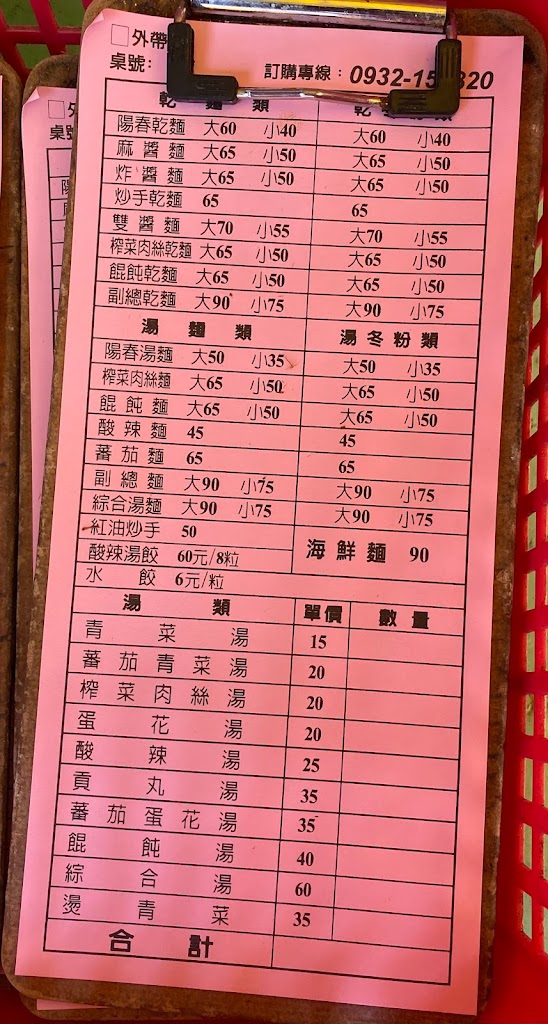 □外帶
桌號:
訂購專線：0932-15 820
乾 麵 類
陽春乾麵 大60 小40 大60 小40
麻醬麵 大65 小50 大65 小50
炸醬麵 大65 小50 大65 小50
炒手乾麵 65 65
雙醬麵 大70 小55 大70 小55
榨菜肉絲乾麵 大65 小50 大65 小50
餛飩乾麵 大65 小50 大65 小50
副總乾麵 大90 小75 大90 小75
湯麵類 湯冬粉類
陽春湯麵 大50 小35 大50 小35
榨菜肉絲麵 大65 小50 大65 小50
餛飩麵 大65 小50 大65 小50
酸辣麵 45 45
蕃茄麵 65 65
副總麵 大90 小75 大90 小75
綜合湯麵 大90 小75 大90 小75
紅油炒手 50
海鮮麵 90
酸辣湯餃 60元/8粒
水餃 6元/粒
湯類 單價 數量
青菜湯 15
蕃茄青菜湯 20
榨菜肉絲湯 20
蛋花湯 20
酸辣湯 25
貢丸湯 35
蕃茄蛋花湯 35
餛飩湯 40
綜合湯 60
燙青菜 35
合計